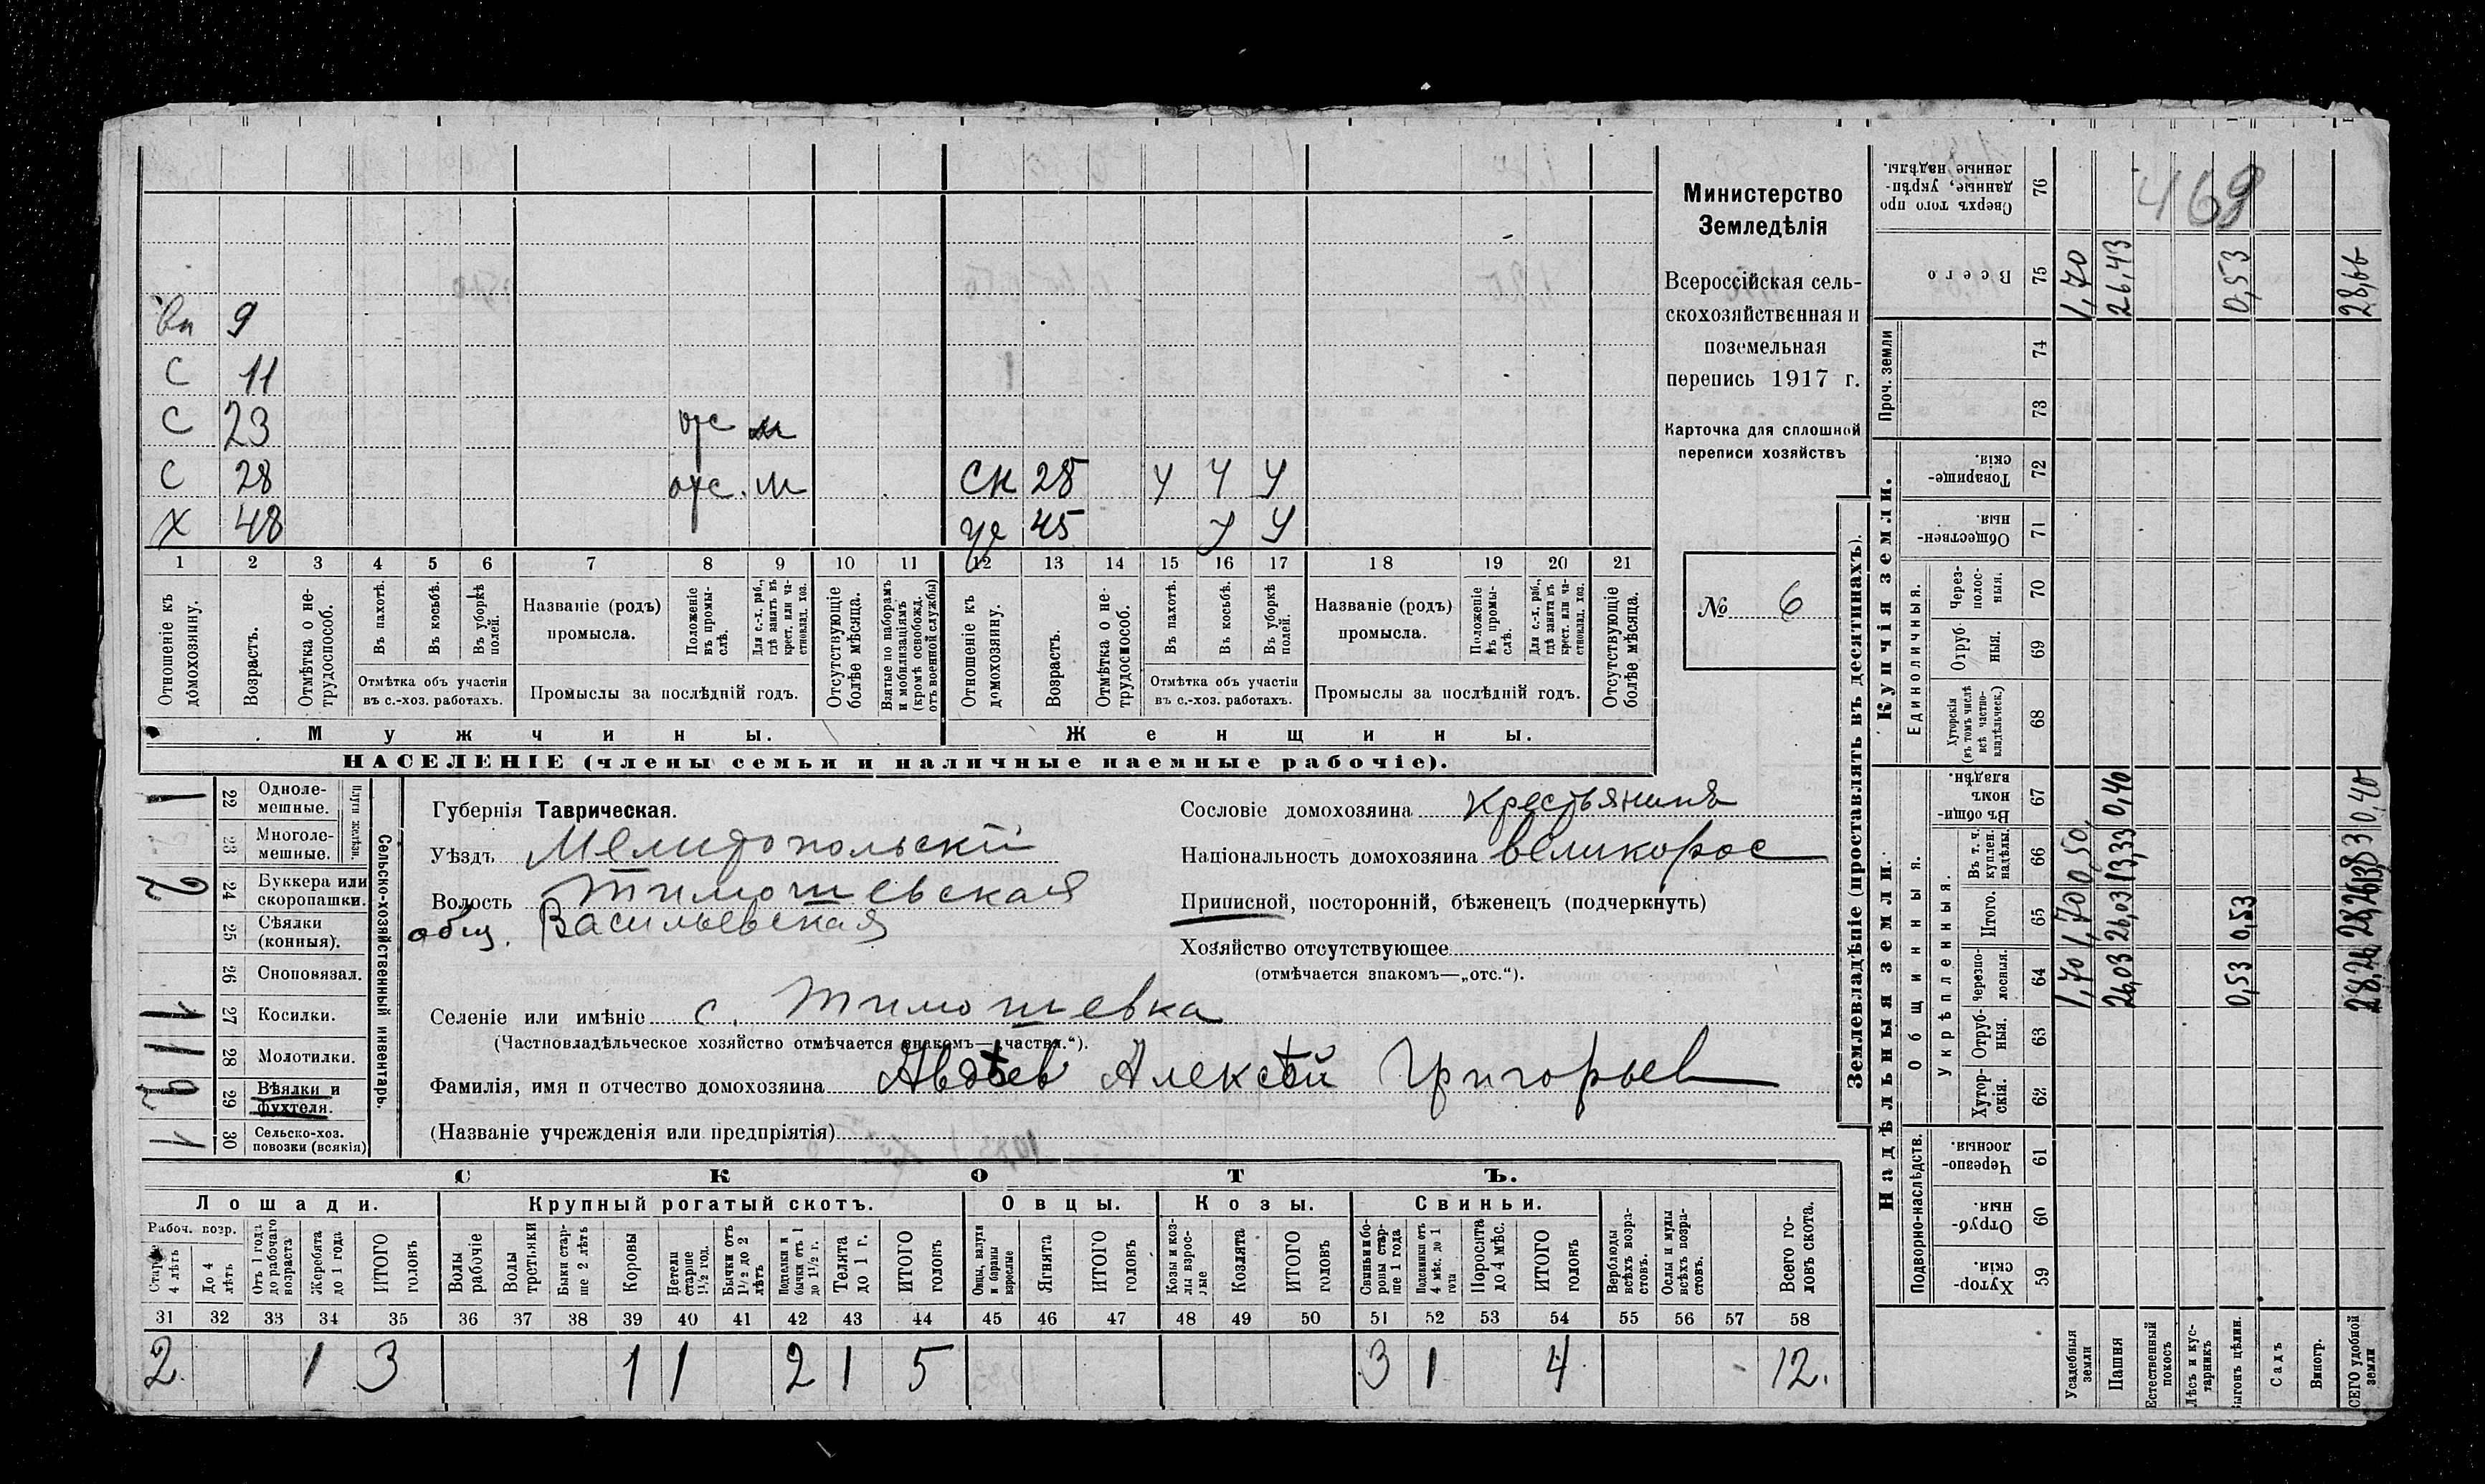 Министерство
Земледѣлія
Всероссійская сель-
скохозяйственная и
поземельная
перепись 1917 г.
Карточка для сплошной
переписи хозяйствъ
№ 6
469
вн 9
С 11
С 23 отс м
С 28 отс. м СН 28 У У У
Х 48 же 45 У У
1 2 3 4 5 6 7 8 9 10 11 12 13 14 15 16 17 18 19 20 21
Отношеніе къ домохозяину.
Возрастъ.
Отмѣтка о не-трудоспособ.
Въ пахотѣ.
Въ косьбѣ.
Въ уборкѣ полей.
Отмѣтка объ участіи
въ с.-хоз. работахъ.
Названіе (родъ)
промысла.
Положеніе въ промы-слѣ.
Для с.-х. раб., гдѣ занятъ въ крест. или ча-стновлад. хоз.
Промыслы за послѣдній годъ.
Отсутствующіе болѣе мѣсяца.
Взятые по наборамъ и мобилизаціямъ (кромѣ освобожд. отъ военной службы)
Отношеніе къ домохозяину.
Возрастъ.
Отмѣтка о не-трудоспособ.
Въ пахотѣ.
Въ косьбѣ.
Въ уборкѣ полей.
Отмѣтка объ участіи
въ с.-хоз. работахъ.
Названіе (родъ)
промысла.
Положеніе въ промы-слѣ.
Для с.-х. раб., гдѣ занята въ крест. или ча-стновлад. хоз.
Промыслы за послѣдній годъ.
Отсутствующіе болѣе мѣсяца.
Мужчины. Женщины.
НАСЕЛЕНІЕ (члены семьи и наличные наемные рабочіе).
Сельско-хозяйственный инвентарь.
Плуги желѣзн.
1 22 Одноле-мешные.
23 Многоле-мешные.
2 24 Буккера или скоропашки.
25 Сѣялки (конныя).
26 Сноповязал.
1 27 Косилки.
1 28 Молотилки.
29 Вѣялки и фухтеля.
1 30 Сельско-хоз. повозки (всякія)
Губернія Таврическая.
Уѣздъ Мелитопольскій
Волость Тимошевская
общ. Васильевская
Сословіе домохозяина Крестьянинъ
Національность домохозяина великорос
Приписной, посторонній, бѣженецъ (подчеркнуть)
Хозяйство отсутствующее
(отмѣчается знакомъ—„отс.“).
Селеніе или имѣніе с. Тимошевка
(Частновладѣльческое хозяйство отмѣчается знакомъ—„частвл.“).
Фамилія, имя и отчество домохозяина Авдѣев Алексѣй Григорьев
(Названіе учрежденія или предпріятія)
СКОТЪ.
Лошади. Крупный рогатый скотъ. Овцы. Козы. Свиньи.
Рабоч. возр.
Старше 4 лѣтъ
До 4 лѣтъ
Отъ 1 года до рабочаго возраста
Жеребята до 1 года
ИТОГО головъ
Волы рабочіе
Волы третьяки
Быки стар-ше 2 лѣтъ
Коровы
Нетели старше 1½ год.
Бычки отъ 1½ до 2 лѣтъ
Подтелки и бычки отъ 1 до 1½ г.
Телята до 1 г.
ИТОГО головъ
Овцы, валухи и бараны взрослые
Ягнята
ИТОГО головъ
Козы и коз-лы взрос-лые
Козлята
ИТОГО головъ
Свиньи и бо-ровы стар-ше 1 года
Подсвинки отъ 4 мѣс. до 1 года
Поросята до 4 мѣс.
ИТОГО головъ
Верблюды всѣхъ возра-стовъ.
Ослы и мулы всѣхъ возра-стовъ.
Всего го-ловъ скота.
31 32 33 34 35 36 37 38 39 40 41 42 43 44 45 46 47 48 49 50 51 52 53 54 55 56 57 58
2 1 3 1 1 2 1 5 3 1 4 - 12.
Землевладѣніе (проставлять въ десятинахъ).
Надѣльныя земли.
Купчія земли.
Проч. земли
Подворно-наслѣдств.
Общинныя.
Укрѣпленныя.
Единоличныя.
Сверхъ того про данные, укрѣп-ленные надѣлы. 76
Всего 75 1,70 26,43 0,53 28,66
74
73
Товарище-скія. 72
Обществен-ныя. 71
Через-полос-ныя. 70
Отруб-ныя. 69
Хуторскія (въ томъ числѣ всѣ частно-владѣльческ.) 68
Въ общи-номъ владѣн. 67 0,40 0,40
Въ т. ч. куплен. надѣлы. 66 0,50 13,33 13,83
Итого. 65 1,70 26,03 0,53 28,26
Черезпо-лосныя. 64 1,70 26,03 0,53 28,26
Отруб-ныя. 63
Хутор-скія. 62
Черезпо-лосныя 61
Отруб-ныя 60
Хутор-скія. 59
Усадебныя земли
Пашня
Естественный покосъ
Лѣсъ и кус-тарникъ
Выгонъ цѣлин.
Садъ
Виногр.
ВСЕГО удобной земли